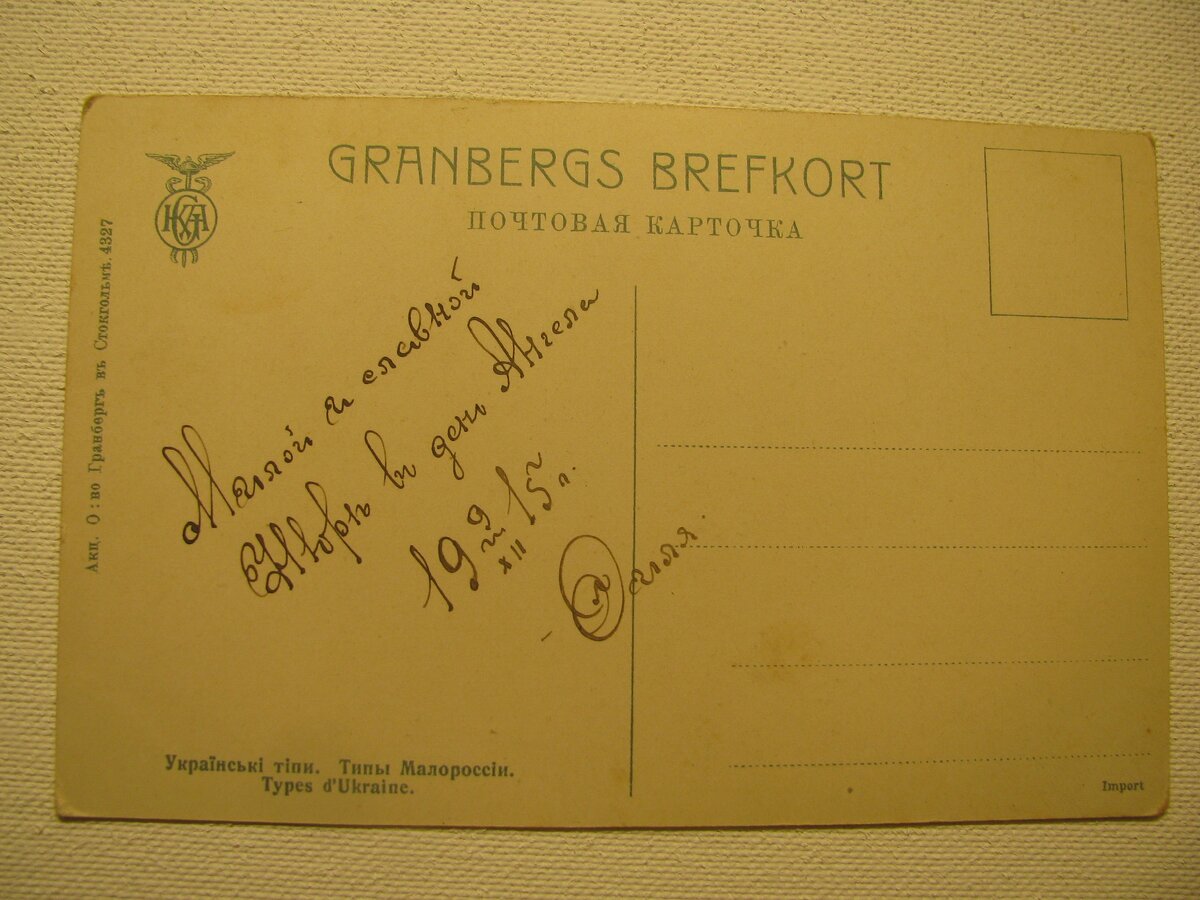 GRANBERGS BREFKORT
ПОЧТОВАЯ КАРТОЧКА
Акц. О:во Гранбергъ въ Стокгольмѣ. 4327
Милой и славной
Нюрѣ въ день Ангела
19 9й XII 15 г.
Українські тіпи. Типы Малороссіи.
Types d'Ukraine.
Import